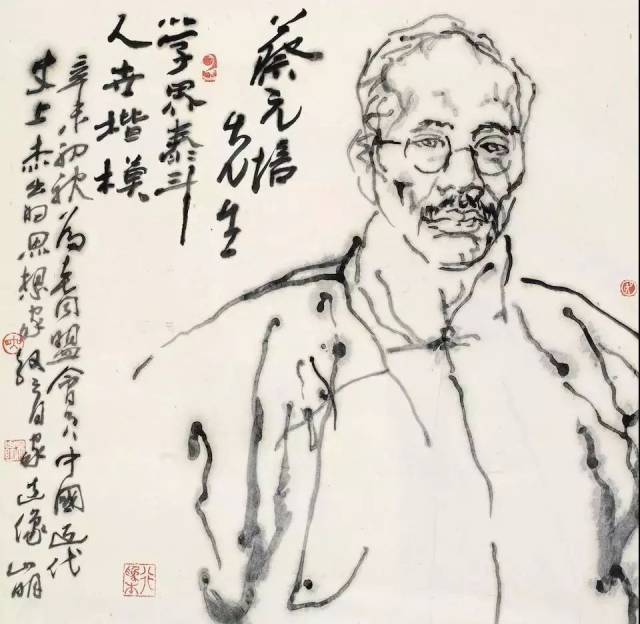 蔡元培
先生
学界泰斗
人世楷模
辛未初秋为老同盟会员中國近代
史上杰出的思想家教育家造像 山明